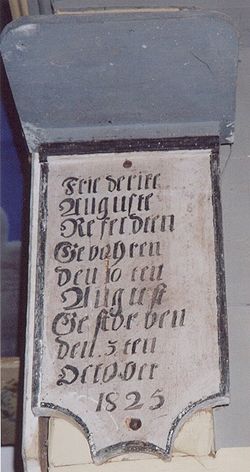 Friederike
Auguste
Refeldten
Gebohren
den 10 ten
August
Gestorben
den 5 ten
October
1825